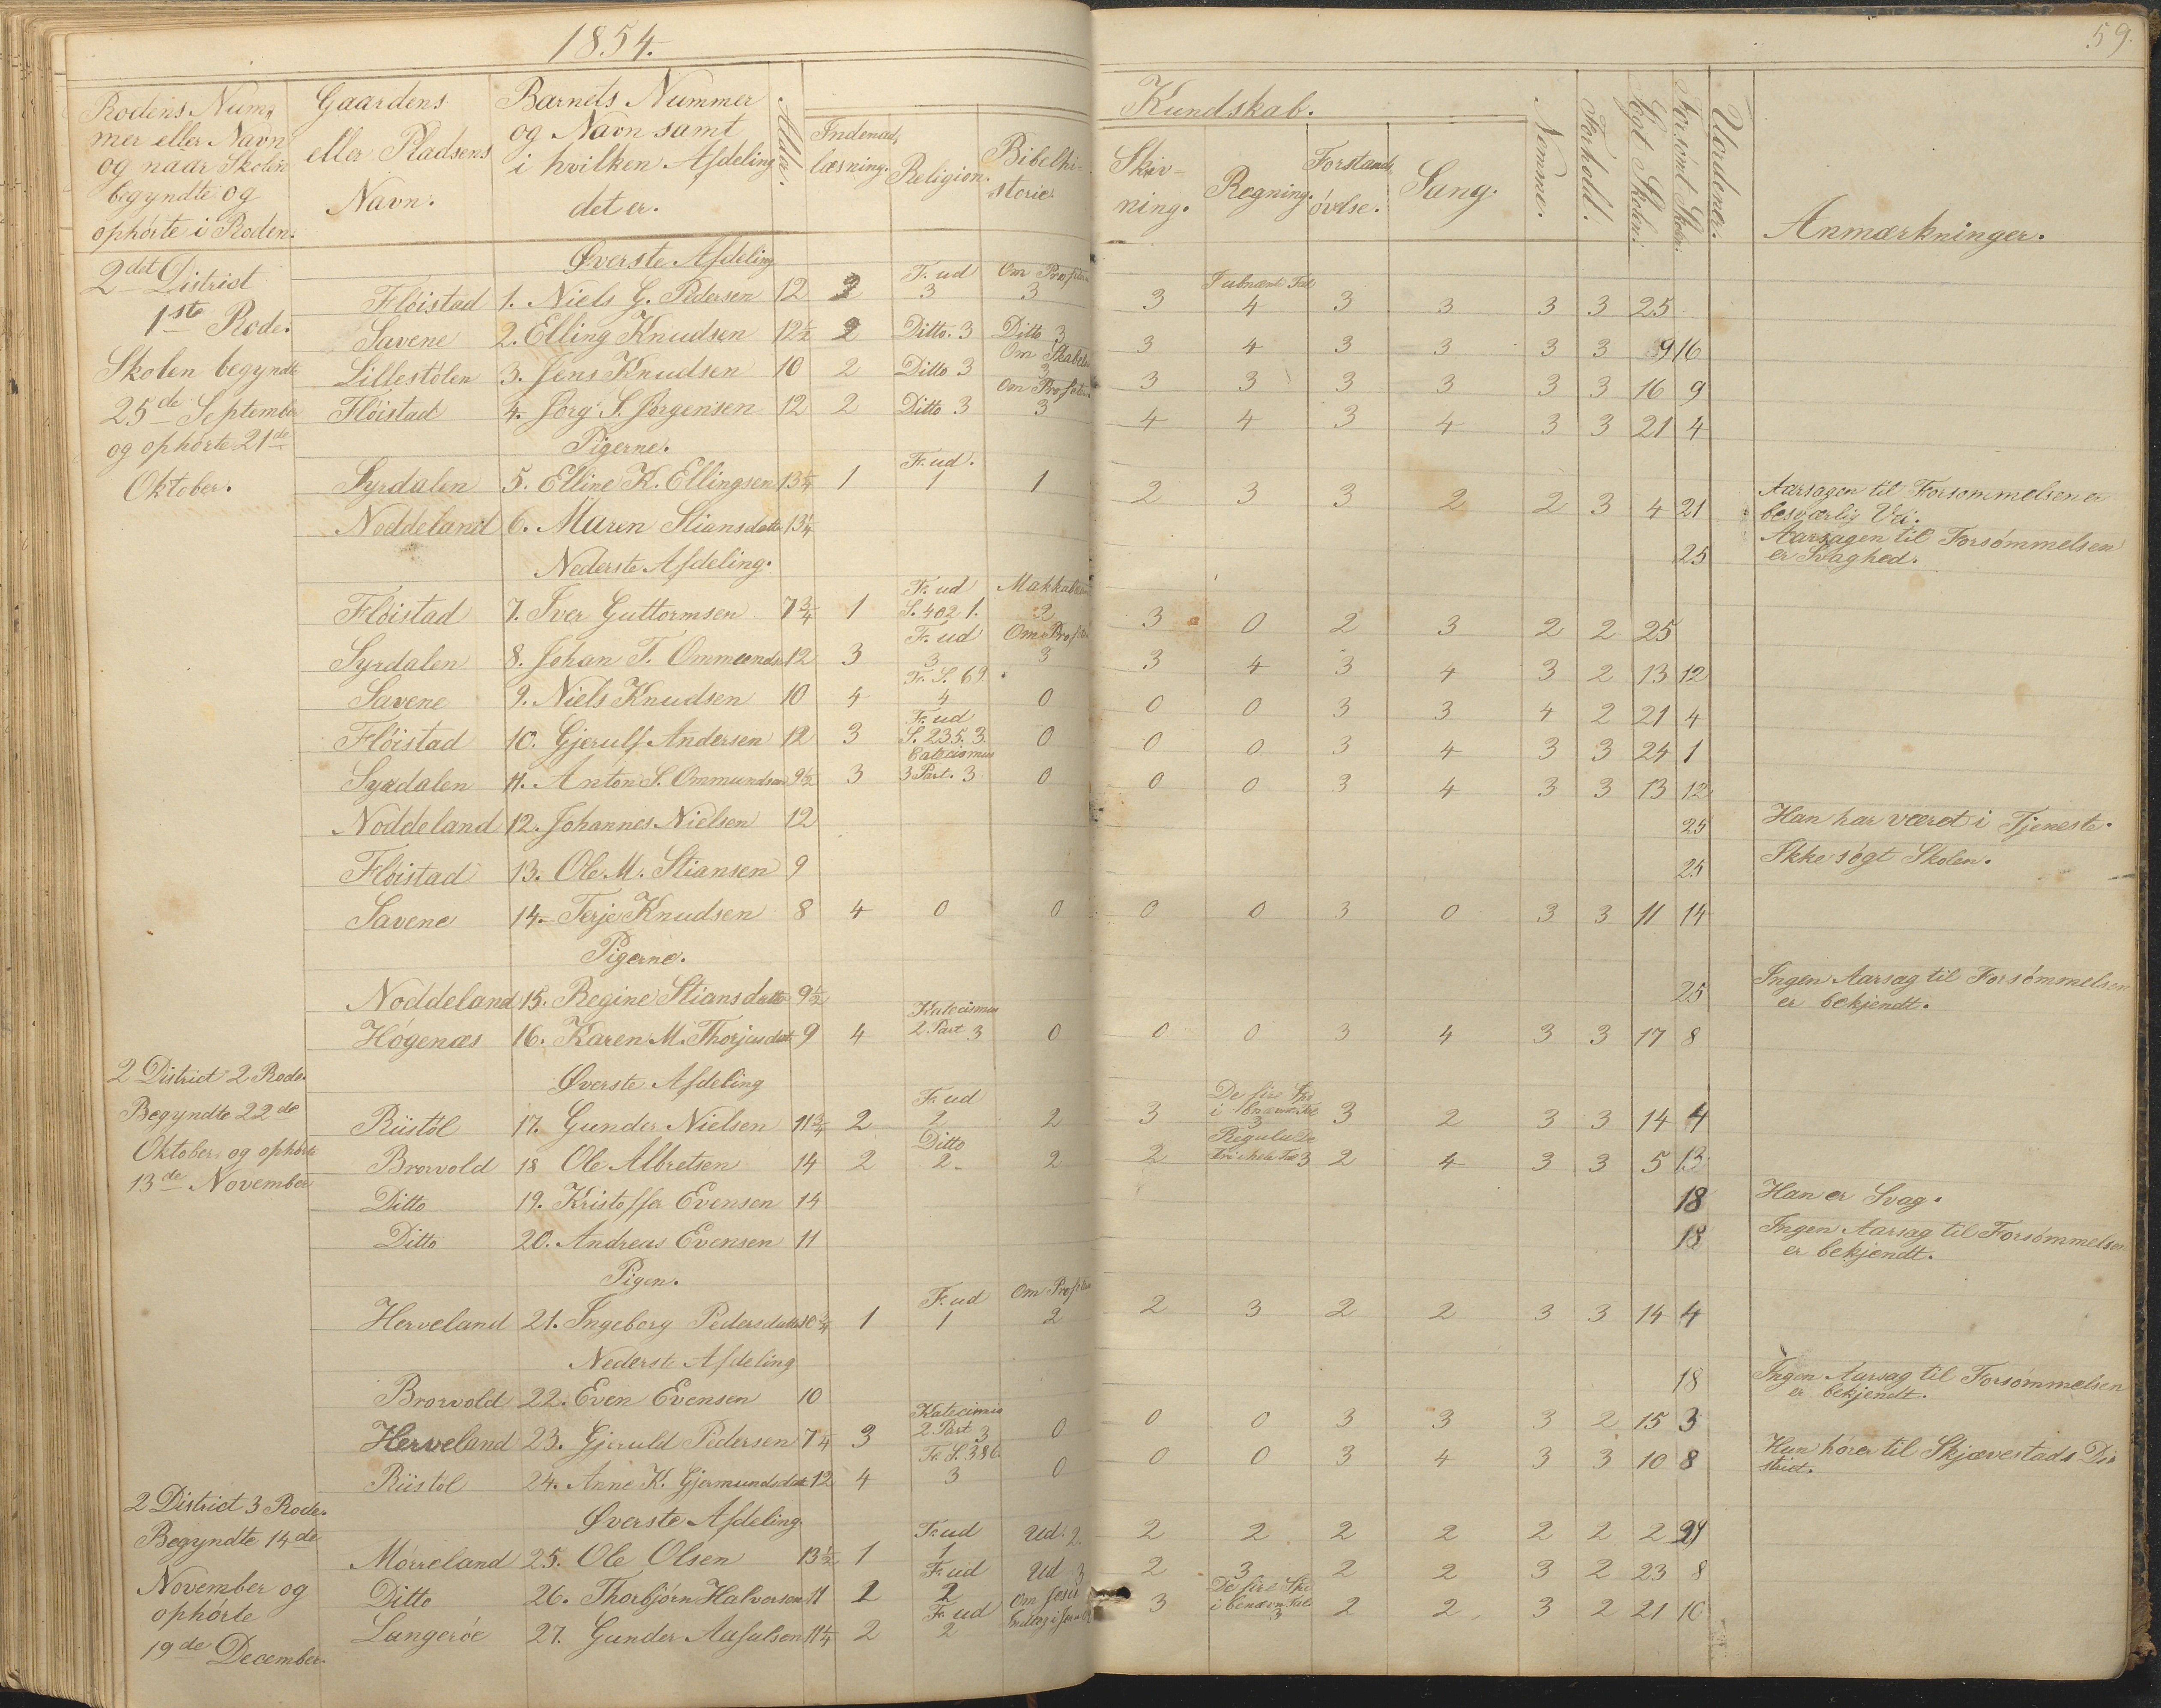 1854.
59.
Rodens Num-
mer eller Navn
og naar Skolen
begyndte og
ophørte i Roden.
Gaardens
eller Pladsens
Navn.
Barnets Nummer
og Navn samt
i hvilken Afdeling
det er.
Alder.
Kundskab.
Indenad-
læsning.
Religion.
Bibelhi-
storie.
Skriv-
ning.
Regning.
Forstands
øvelse.
Sang.
Nemme.
Forhold.
Søgt Skolen.
Forsømt Skolen.
Uordener.
Anmærkninger.
2det District
1ste Rode.
Skolen begyndte
25de September
og ophørte 21de
Oktober.
Øverste Afdeling
Fr. ud Om Profeter
Fløistad 1. Niels G. Pedersen 12 3 3 3 3 4 3 3 3 3 25
Savene 2. Elling Knudsen 12½ 2 Ditto. 3 Ditto 3 3 4 3 3 3 3 9 16
Om Skabelsen
Lillestølen 3. Jens Knudsen 10 2 Ditto 3 3 3 3 3 3 3 3 16 9
Om Profeter
Fløistad 4. Jørg S. Jørgensen 12 2 Ditto 3 3 4 4 3 4 3 3 21 4
Pigerne.
Fr. ud.
Syrdalen 5. Elline K. Ellingsen 13¼ 1 1 1 2 3 3 2 2 3 4 21 Aarsagen til Forsømmelsen er
besværlig Vei.
Noddeland 6. Maren Stiansdatter 13¼ 25 Aarsagen til Forsømmelsen
er Svaghed.
Nederste Afdeling.
Fr. ud Makkabæerne
Fløistad 7. Iver Guttormsen 7¾ 1 S. 402 1. 2 3 0 2 3 2 2 25
Fr. ud Om Profeter
Syrdalen 8. Johan T. Ommundsen 12 3 3 3 3 4 3 4 3 2 13 12
Fr. S. 69.
Savene 9. Niels Knudsen 10 4 4 0 0 0 3 3 4 2 21 4
Fr. ud
Fløistad 10. Gjerulf Andersen 12 3 S. 235. 3. 0 0 0 3 4 3 3 24 1
Catecismus
Syrdalen 11. Anton S. Ommundsen 9½ 3 3 Part. 3 0 0 0 3 4 3 3 13 12
Noddeland 12. Johannes Nielsen 12 25 Han har været i Tjeneste.
Fløistad 13. Ole M. Stiansen 9 25 Ikke søgt Skolen.
Savene 14. Terje Knudsen 8 4 0 0 0 0 3 0 3 3 11 14
Pigerne.
Noddeland 15. Regine Stiansdatter 9½ 25 Ingen Aarsag til Forsømmelsen
er bekjendt.
Katecismus
Høgenæs 16. Karen M. Thorjusdat 9 4 2 Part 3 0 0 0 3 4 3 3 17 8
2 District 2 Rode.
Begyndte 22de
Oktober og ophørte
13de November
Øverste Afdeling
Fr. ud De fire Spe
i benævnte Tal
Riistøl 17. Gunder Nielsen 11¾ 2 2 2 3 3 3 2 3 3 14 4
Ditto Regula De
Brorvold 18 Ole Albretsen 14 2 2 2 2 Tri i hele Tal 3 2 4 3 3 5 13
Ditto 19. Kristoffer Evensen 14 18 Han er Svag.
Ditto 20. Andreas Evensen 11 18 Ingen Aarsag til Forsømmelsen
er bekjendt.
Pigen.
Fr. ud Om Profeter
Herveland 21. Ingeborg Pedersdatter 10¾ 1 1 2 2 3 2 2 3 3 14 4
Nederste Afdeling
Brorvold 22. Even Evensen 10 18 Ingen Aarsag til Forsømmelsen
er bekjendt.
Katecismus
Herveland 23. Gjeruld Pedersen 7¼ 3 2 Part 3 0 0 0 3 3 3 2 15 3
Fr. S. 386
Riistøl 24. Anne K. Gjermundsdat 12 4 3 0 0 0 3 4 3 3 10 8 Hun hører til Skjævestads Di-
strict.
2 District 3 Rode.
Begyndte 14de
November og
ophørte
19de December.
Øverste Afdeling.
Fr. ud
Mørreland 25. Ole Olsen 13½ 1 1 Ud. 2. 2 2 2 2 2 2 2 29
Fr. ud
Ditto 26. Thorbjørn Halvorsen 11 2 2 Ud 3 2 3 2 2 3 2 23 8
Fr. ud Om Jesu De fire Spe
i benævn Tal
Langerøe 27. Gunder Aasulsen 11¼ 2 2 3 3 2 2 3 2 21 10